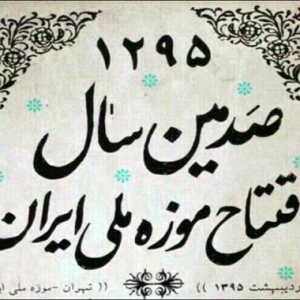 ۱۲۹۵
صدمین سال
فتتاح موزه ملی ایران
ردیبهشت ۱۳۹۵ )) (( تهران - موزه ملی ایر